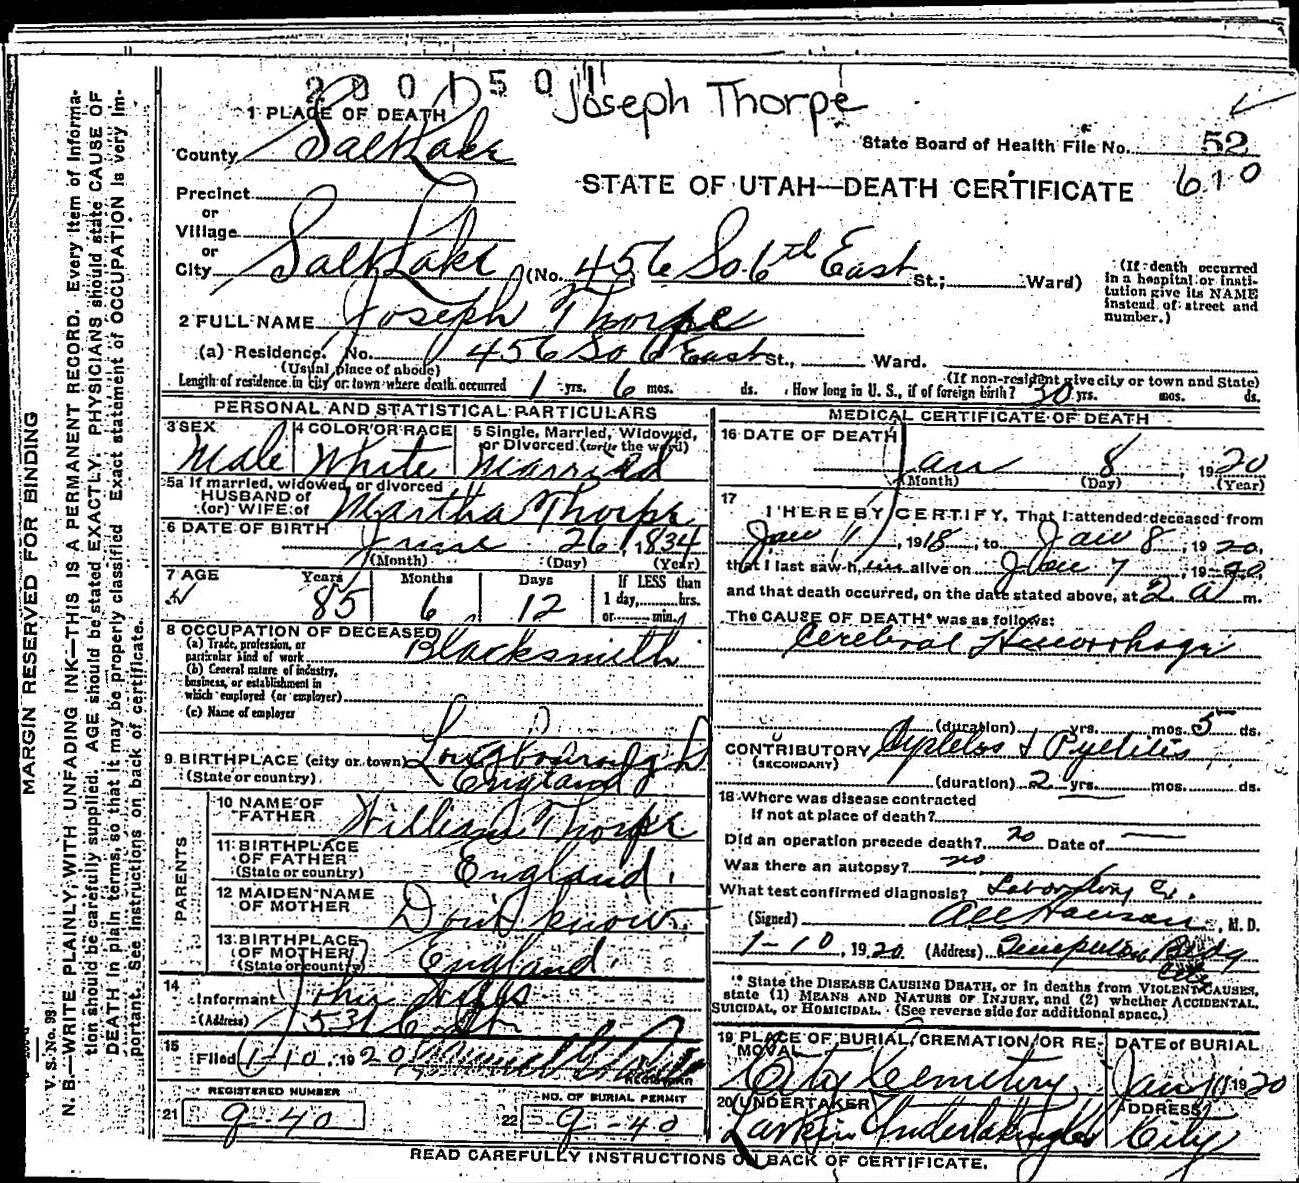 2001501
Joseph Thorpe
1 PLACE OF DEATH
State Board of Health File No. 52
County Salt Lake
610
STATE OF UTAH—DEATH CERTIFICATE
Precinct
or
Village
or
City Salt Lake (No. 456 So 6th East St.; Ward)
(If death occurred in a hospital or institution give its NAME instead of street and number.)
2 FULL NAME Joseph Thorpe
(a) Residence. No. 456 So 6 East St., Ward.
(Usual place of abode) (If non-resident give city or town and State)
Length of residence in city or town where death occurred 1 yrs. 6 mos. ds. How long in U. S., if of foreign birth? 30 yrs. mos. ds.
PERSONAL AND STATISTICAL PARTICULARS
3 SEX Male
4 COLOR OR RACE White
5 Single, Married, Widowed, or Divorced (write the word) Married
5a If married, widowed, or divorced
HUSBAND of
(or) WIFE of Martha Thorpe
6 DATE OF BIRTH June 26, 1834
(Month) (Day) (Year)
7 AGE Years 85 Months 6 Days 12 If LESS than 1 day, hrs. or min.
8 OCCUPATION OF DECEASED
(a) Trade, profession, or particular kind of work Blacksmith
(b) General nature of industry, business, or establishment in which employed (or employer)
(c) Name of employer
9 BIRTHPLACE (city or town) Loughbourough
(State or country) England
PARENTS
10 NAME OF FATHER William Thorpe
11 BIRTHPLACE OF FATHER (State or country) England.
12 MAIDEN NAME OF MOTHER Don't know.
13 BIRTHPLACE OF MOTHER (State or country) England.
14
Informant John
(Address) 531
15
Filed 1-10, 1920
REGISTRAR
REGISTERED NUMBER
21 9-40
NO. OF BURIAL PERMIT
22 9-40
MEDICAL CERTIFICATE OF DEATH
16 DATE OF DEATH
Jan 8, 1920
(Month) (Day) (Year)
17 I HEREBY CERTIFY, That I attended deceased from
Jan 1, 1918, to Jan 8, 1920,
that I last saw him alive on Jan 7, 1920,
and that death occurred, on the date stated above, at 2 a m.
The CAUSE OF DEATH* was as follows:
Cerebral Hemorrhage
(duration) yrs. mos. 5 ds.
CONTRIBUTORY Cystitis & Pyelitis
(SECONDARY)
(duration) 2 yrs. mos. ds.
18 Where was disease contracted
if not at place of death?
Did an operation precede death? no Date of —
Was there an autopsy? no
What test confirmed diagnosis? Laboratory Ex.
(Signed) M. D.
1-10, 1920 (Address) Bldg
City
* State the DISEASE CAUSING DEATH, or in deaths from VIOLENT CAUSES, state (1) MEANS AND NATURE OF INJURY, and (2) whether ACCIDENTAL, SUICIDAL, or HOMICIDAL. (See reverse side for additional space.)
19 PLACE OF BURIAL, CREMATION, OR REMOVAL
City Cemetery
DATE OF BURIAL
Jan 11 1920
20 UNDERTAKER
Larkin Undertaking Co
ADDRESS
City
READ CAREFULLY INSTRUCTIONS ON BACK OF CERTIFICATE.
MARGIN RESERVED FOR BINDING
V. S. No. 98
N. B.—WRITE PLAINLY, WITH UNFADING INK—THIS IS A PERMANENT RECORD. Every item of information should be carefully supplied. AGE should be stated EXACTLY. PHYSICIANS should state CAUSE OF DEATH in plain terms, so that it may be properly classified. Exact statement of OCCUPATION is very important. See instructions on back of certificate.